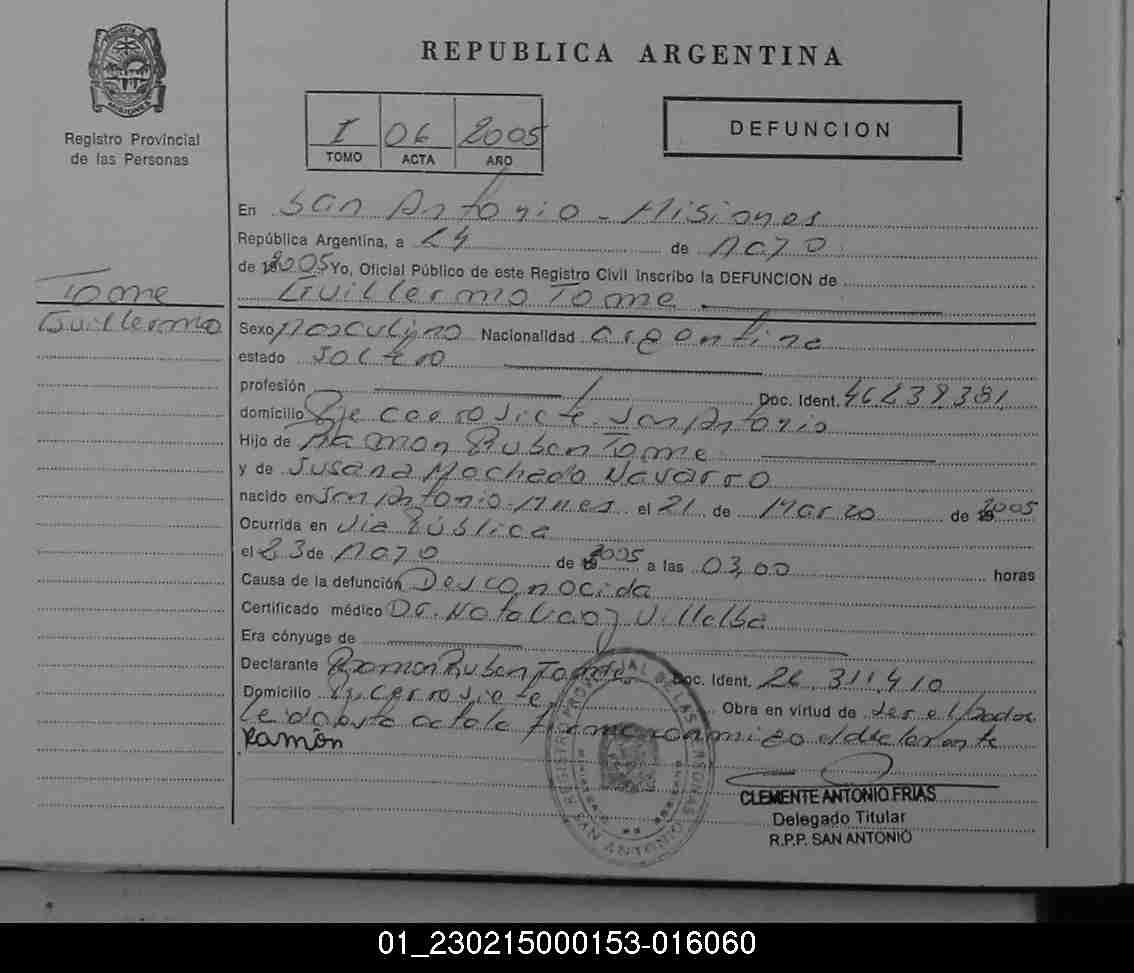 REPUBLICA ARGENTINA
Registro Provincial
de las Personas
I 06 2005
TOMO ACTA AÑO
DEFUNCION
En San Antonio - Misiones
República Argentina, a 24 de Mayo
de 2005 Yo, Oficial Público de este Registro Civil inscribo la DEFUNCION de
Guillermo Tome
Tome
Guillermo
Sexo Masculino Nacionalidad argentina
estado Soltero
profesión Doc. Ident. 46.239.381
domicilio Pje cerro siete. San Antonio
Hijo de Ramon Ruben Tome
y de Susana Machado Navarro
nacido en San Antonio. Mnes el 21 de Marzo de 2005
Ocurrida en Via Pública
el 23 de Mayo de 2005 a las 03,00 horas
Causa de la defunción Desconocida
Certificado médico Dr. Villalba
Era cónyuge de
Declarante Ramon Ruben Tome Doc. Ident. 26.311.410
Domicilio cerro siete Obra en virtud de ser el Padre
Leida esta acta la firma conmigo el declarante
Ramón
REGISTRO PROVINCIAL DE LAS PERSONAS
SAN ANTONIO
CLEMENTE ANTONIO FRIAS
Delegado Titular
R.P.P. SAN ANTONIO
01_230215000153-016060